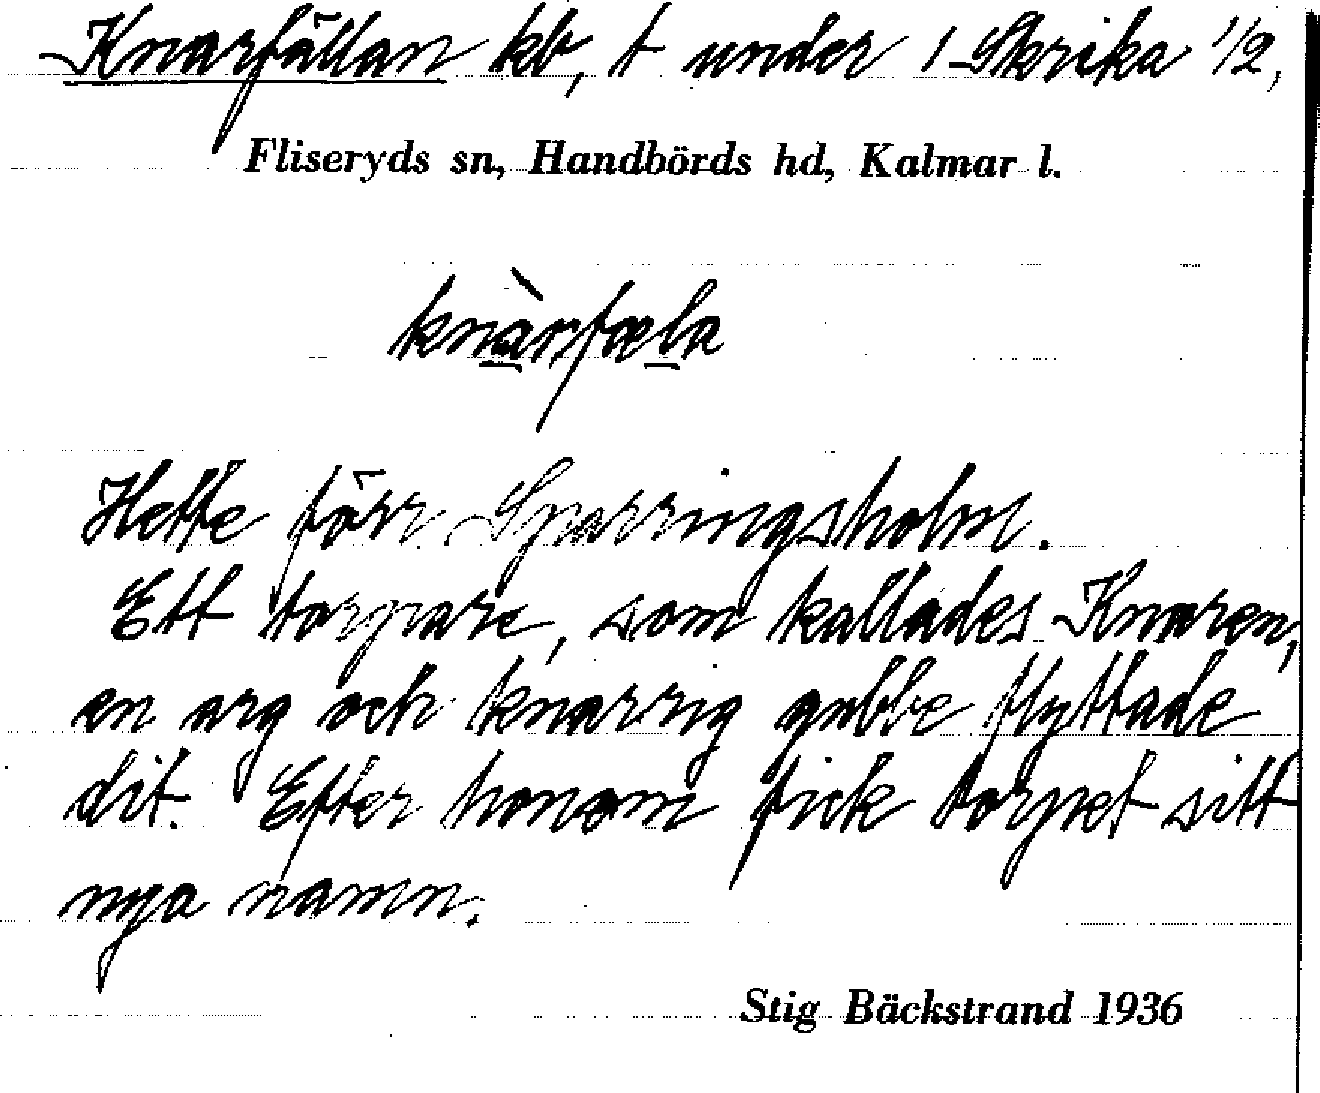 Knarfällan kb, t under 1 Skrika 1/2,
Fliseryds sn, Handbörds hd, Kalmar l.
knàrfæla
Hette förr Sparringsholm.
Ett torpare, som kallades Knaren,
en arg och knarrig gubbe flyttade
dit. Efter honom fick torpet sitt
nya namn.
Stig Bäckstrand 1936